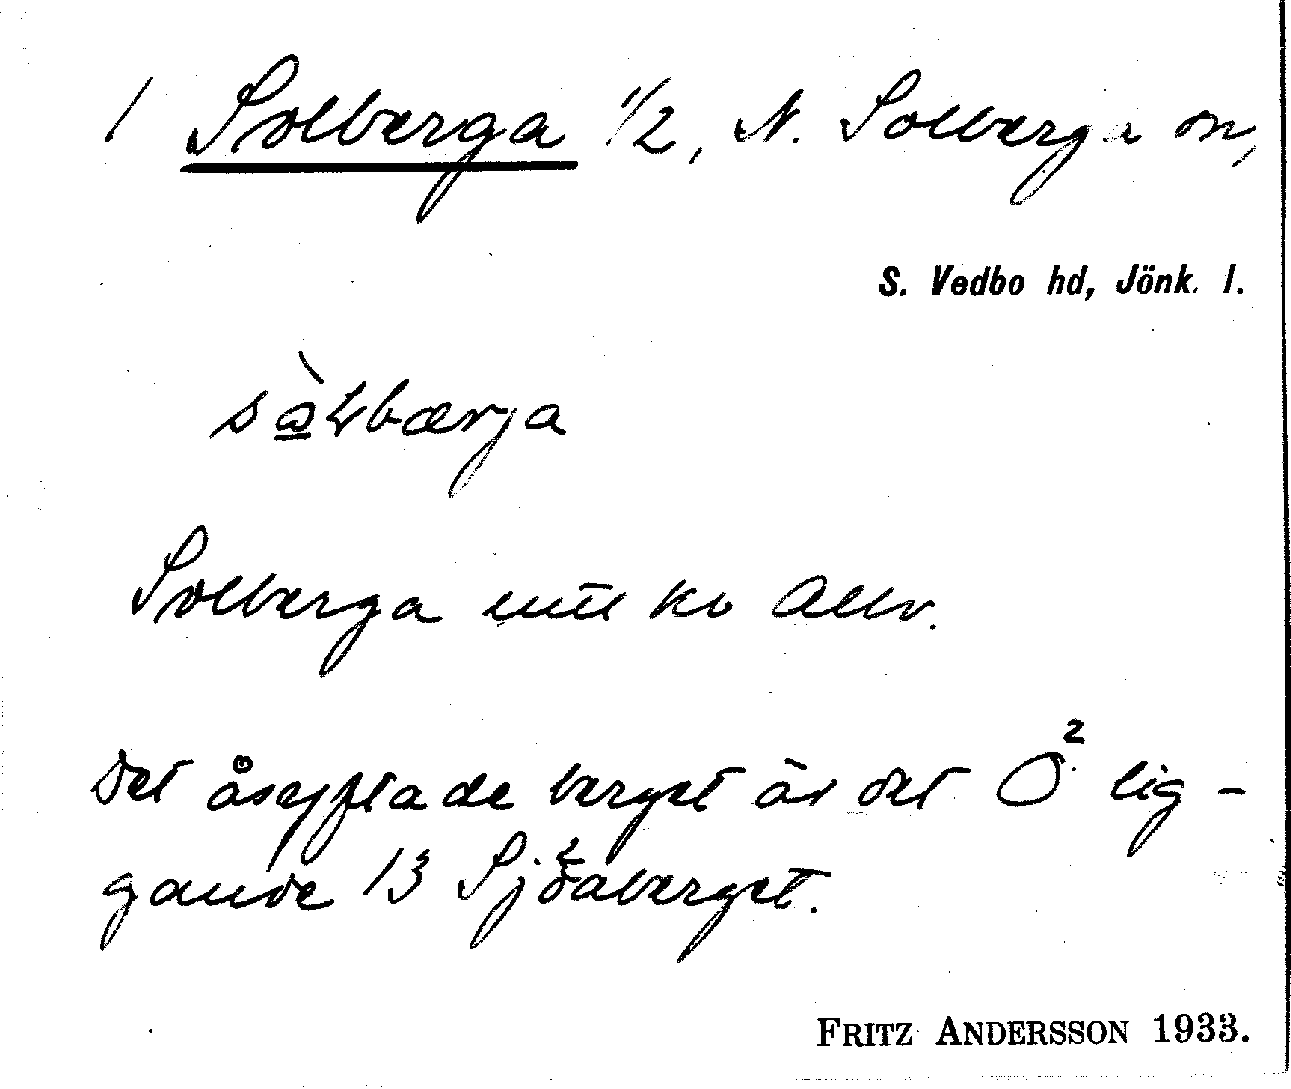 1 Solberga 1/2, N. Solberga sn,
S. Vedbo hd, Jönk. l.
Solberga
Det åsyftade berget är det Ö. lig-
gande 13 Sjöaberget.
FRITZ ANDERSSON 1933.